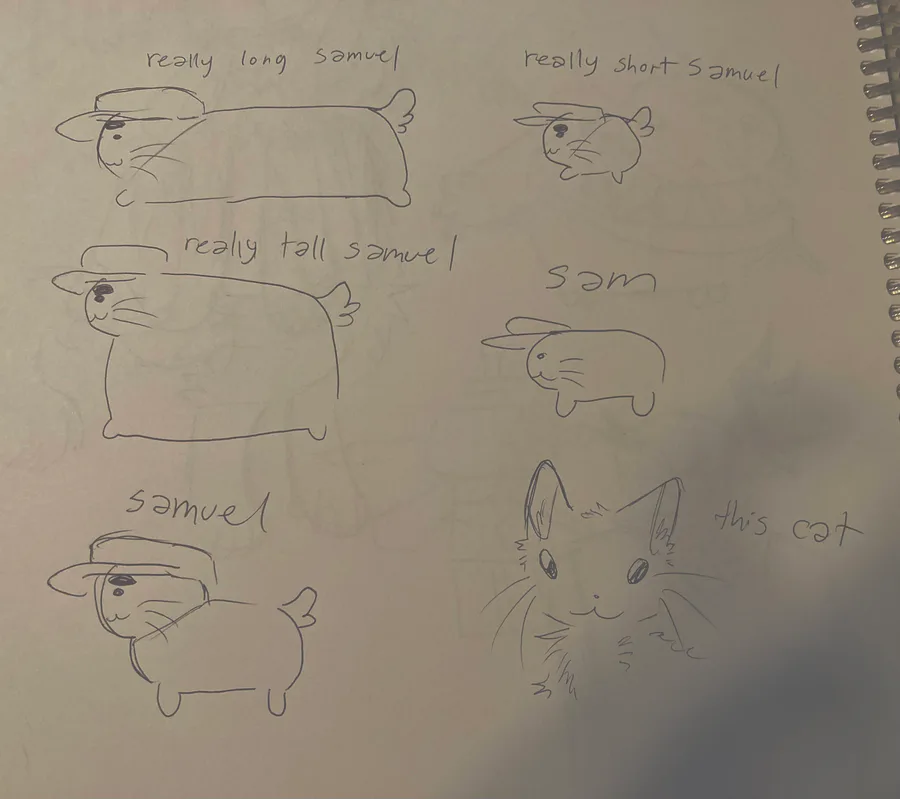 really long samuel
really short samuel
really tall samuel
sam
samuel
this cat